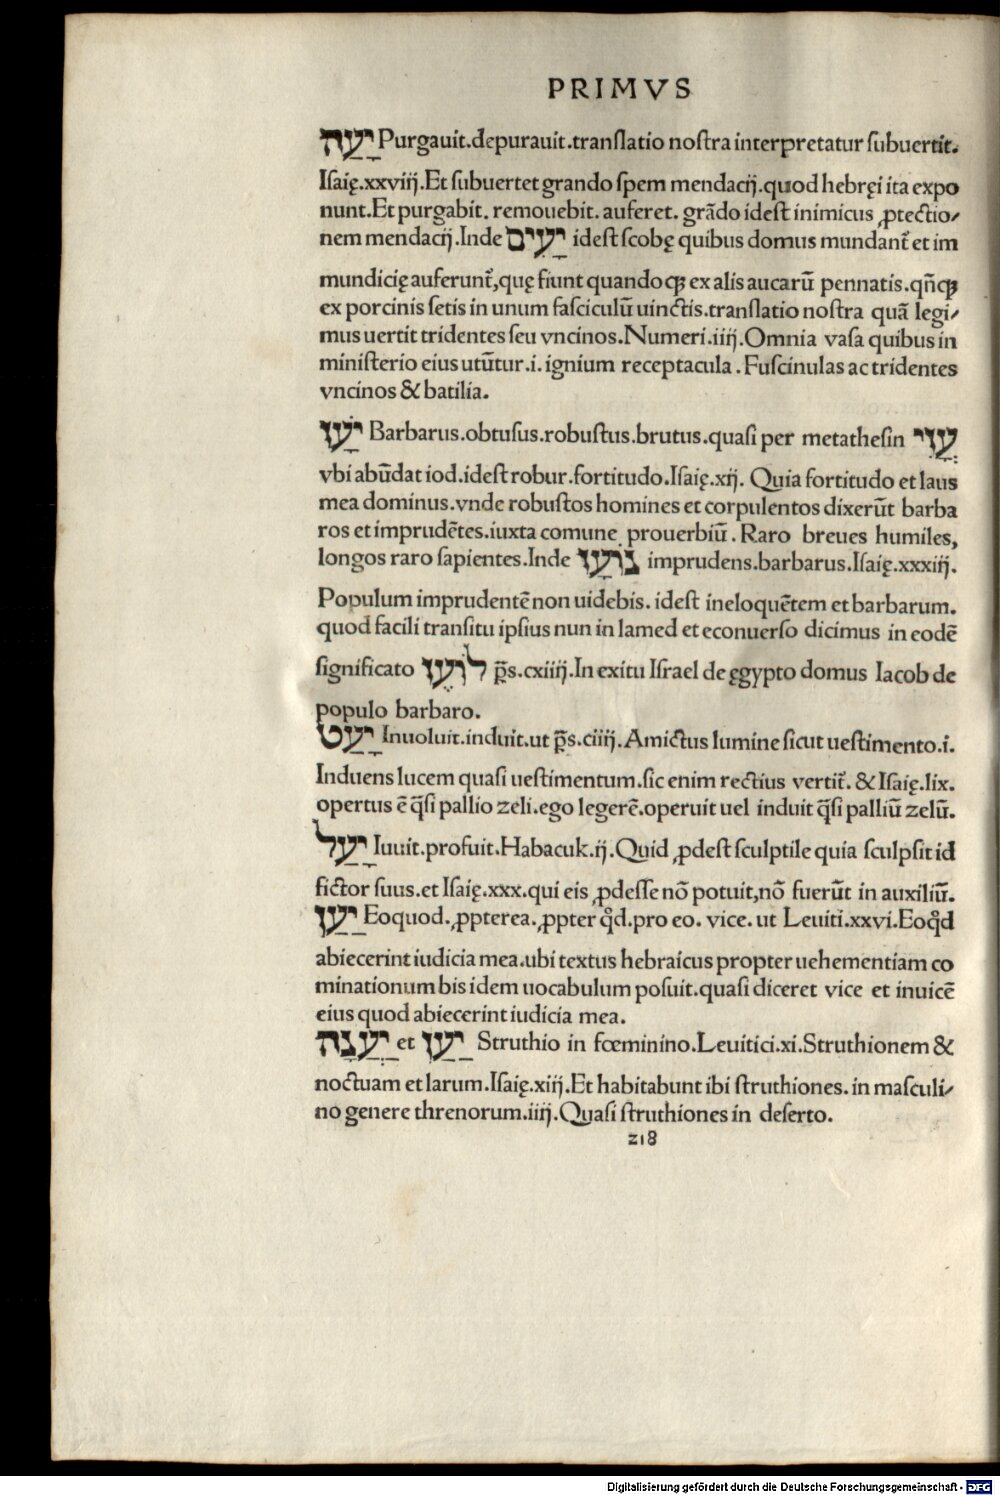 PRIMVS
יָעַה Purgauit.depurauit.tranſlatio noſtra interpretatur ſubuertit.
Iſaię.xxviij.Et ſubuertet grando ſpem mendacij.quod hebręi ita expo
nunt.Et purgabit. remouebit. auferet. grādo ideſt inimicus ꝓtectio⸗
nem mendacij.Inde יָעִים ideſt ſcobę quibus domus mundant᷑ et im
mundicię auferunt᷑,quę fiunt quandoqꝫ ex alis aucarū pennatis.qñqꝫ
ex porcinis ſetis in unum faſciculū uinctis.tranſlatio noſtra quā legi⸗
mus uertit tridentes ſeu vncinos.Numeri.iiij.Omnia vaſa quibus in
miniſterio eius utūtur.i. ignium receptacula.Fuſcinulas ac tridentes
vncinos & batilia.
יָעַז Barbarus.obtuſus.robuſtus.brutus.quaſi per metatheſin עֱזִי
vbi abūdat iod.ideſt robur.fortitudo.Iſaię.xij. Quia fortitudo et laus
mea dominus.vnde robuſtos homines et corpulentos dixerūt barba
ros et imprudētes.iuxta comune prouerbiū. Raro breues humiles,
longos raro ſapientes.Inde נוֹעָז imprudens.barbarus.Iſaię.xxxiij.
Populum imprudentē non uidebis. ideſt ineloquētem et barbarum.
quod facili tranſitu ipſius nun in lamed et econuerſo dicimus in eodē
ſignificato לוֹעֵז p̄s.cxiiij.In exitu Iſrael de ęgypto domus Iacob de
populo barbaro.
יָעַט Inuoluit.induit.ut p̄s.ciiij.Amictus lumine ſicut ueſtimento.i.
Induens lucem quaſi ueſtimentum.ſic enim rectius vertit᷑. & Iſaię.lix.
opertus ē q̄ſi pallio zeli.ego legerē.operuit uel induit q̄ſi palliū zelū.
יָעַל Iuuit.profuit.Habacuk.ij.Quid ꝓdeſt ſculptile quia ſculpſit id
fictor ſuus.et Iſaię.xxx.qui eis ꝓdeſſe nō potuit,nō fuerūt in auxiliū.
יַעַן Eoquod.ꝓpterea.ꝓpter qd̄.pro eo. vice. ut Leuiti.xxvi.Eoqd̄
abiecerint iudicia mea.ubi textus hebraicus propter uehementiam co
minationum bis idem uocabulum poſuit.quaſi diceret vice et inuicē
eius quod abiecerint iudicia mea.
יַעֲנָה et יַעַן Struthio in fœminino.Leuitici.xi.Struthionem &
noctuam et larum.Iſaię.xiij.Et habitabunt ibi ſtruthiones. in maſculi⸗
no genere threnorum.iiij.Quaſi ſtruthiones in deſerto.
218
Digitalisierung gefördert durch die Deutsche Forschungsgemeinschaft - DFG